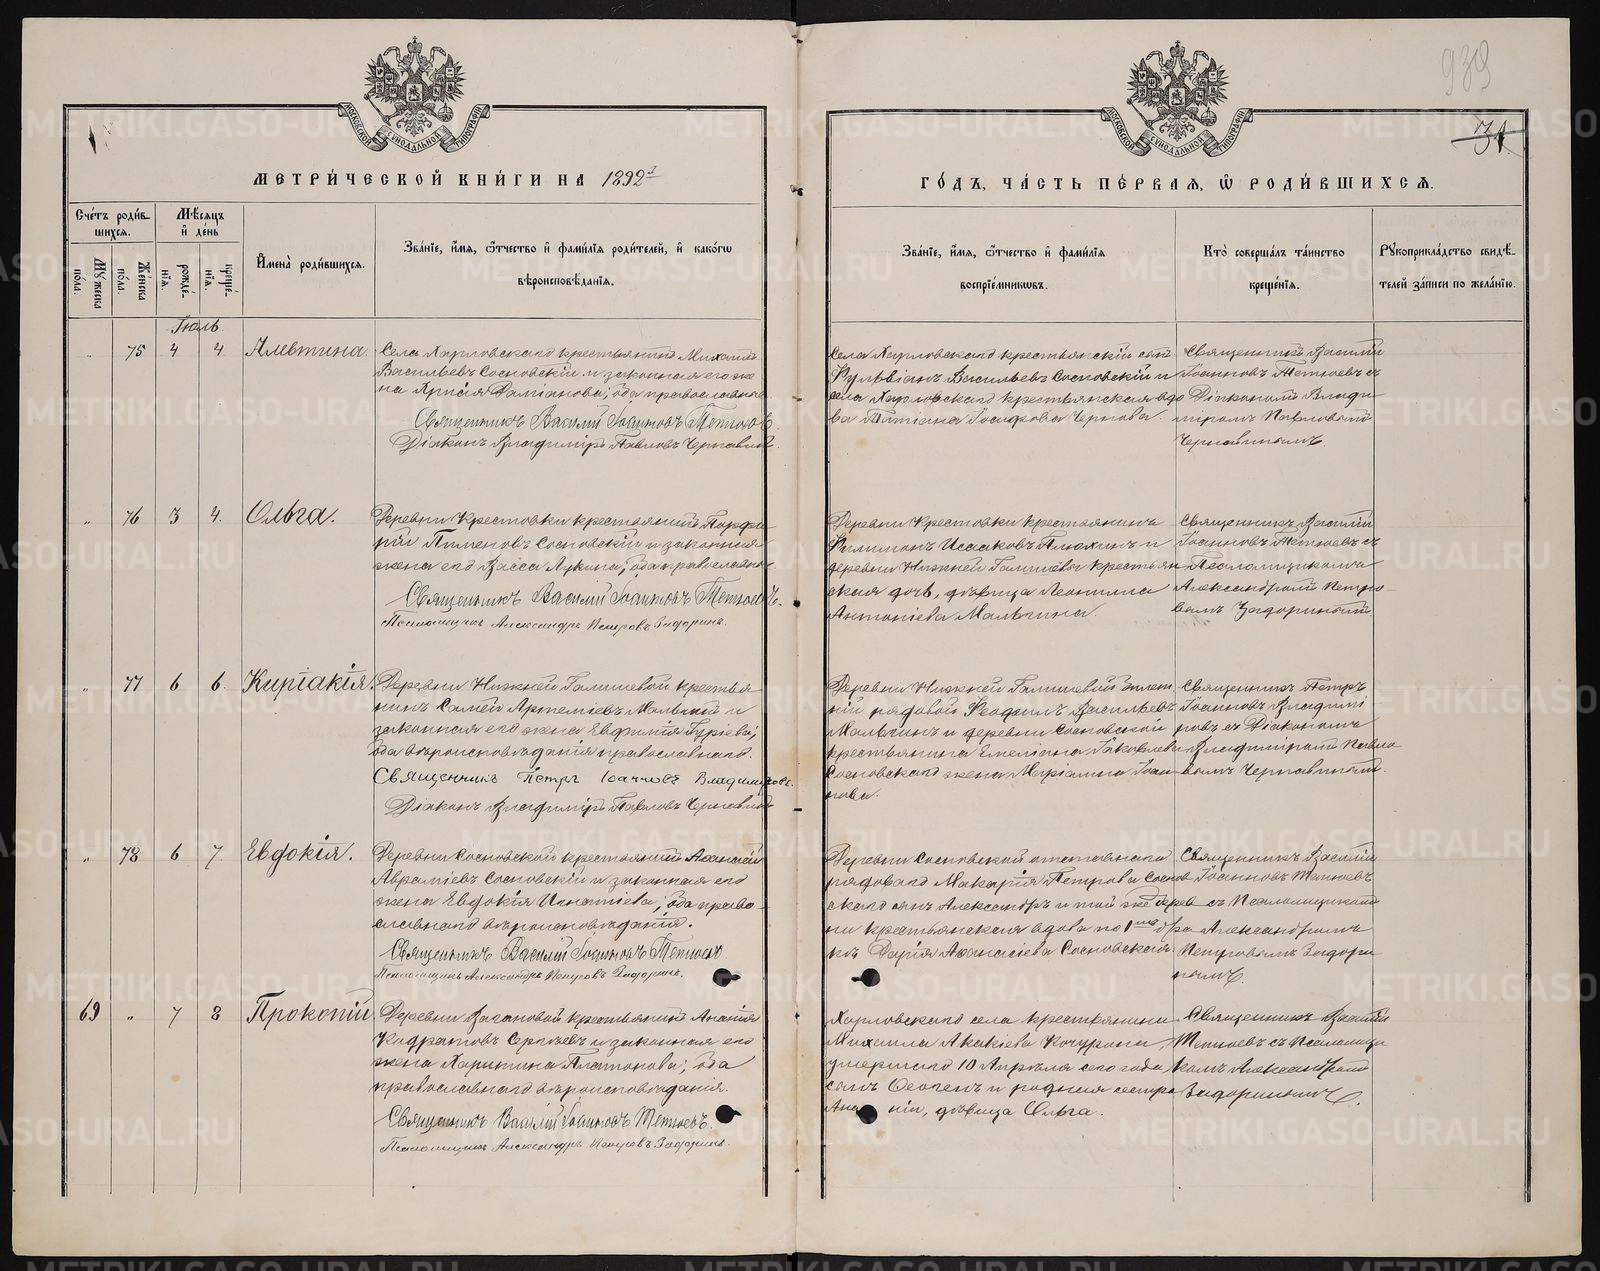 939
31
МОСКОВСКОЙ СѴНОДАЛЬНОЙ ТИПОГРАФІИ
МОСКОВСКОЙ СѴНОДАЛЬНОЙ ТИПОГРАФІИ
МЕТРИ́ЧЕСКОЙ КНИ́ГИ НА 1892 й
ГО́ДЪ, ЧА́СТЬ ПЕ́РВАЯ, Ѡ РОДИ́ВШИХСѦ.
Сче́тъ роди́в-
шихся.
Мѣ́сяцъ
и де́нь
Му́жеска по́ла.
Же́нска по́ла.
рожде́-
нія.
креще́-
нія.
И҆мена̀ роди́вшихся.
Зва́ніе, и҆́мя, ѻ҆́тчество и҆ фами́лія роди́телей, и҆ како́гѡ
вѣроисповѣ́данія.
Зва́ніе, и҆́мя, ѻ҆́тчество и҆ фами́лія
воспріе́мниковъ.
Кто̀ соверша́лъ та́инство
креще́нія.
Рꙋкоприкла́дство свидѣ́-
телей за́писи по жела́нію.
Іюль.
„ 75 4 4. Алевтина.
Села Харловскаго крестьянинъ Михаилъ
Васильевъ Сосновскій и законная его же-
на Хрисія Даміанова; оба православные
Священникъ Василій Іоанновъ Тетюевъ
Діаконъ Владиміръ Павловъ Чернавинъ.
Села Харловскаго крестьянскій сынъ
Фульвіанъ Васильевъ Сосновскій и
села Харловскаго крестьянская вдо
ва Татіана Іосифова Чернова
Священникъ Василій
Іоанновъ Тетюевъ съ
Діакономъ Влади-
міромъ Павловымъ
Чернавинымъ.
„ 76 3 4. Ольга.
Деревни Крестовки крестьянинъ Порфи-
рій Пименовъ Сосновскій и законная
жена его Васса Лукина; оба православные
Священникъ Василій Іоанновъ Тетюевъ.
Псаломщикъ Александръ Петровъ Задоринъ.
Деревни Крестовки крестьянинъ
Филимонъ Исааковъ Плюхинъ и
деревни Нижней Галишевой крестьян
ская дочь, дѣвица Леонтина
Антоніева Мальгина
Священникъ Василій
Іоанновъ Тетюевъ съ
Псаломщикомъ
Александромъ Петро-
вымъ Задоринымъ.
„ 77 6 6. Киріакія.
Деревни Нижней Галишевой крестья-
нинъ Самей Артеміевъ Мальгинъ и
законная его жена Евфимія Гуріева;
оба вѣроисповѣданія православнаго.
Священникъ Петръ Іоанновъ Владиміровъ.
Діаконъ Владиміръ Павловъ Чернавинъ
Деревни Нижней Галишевой
рядовой Феофилъ Васильевъ
Мальгинъ и деревни Сосновской
крестьянина Емеліана Іаковлева
Сосновскаго жена Маріамна Іоан-
нова.
Священникъ Петръ
Іоанновъ Владимі
ровъ съ Діакономъ
Владиміромъ Павло-
вымъ Чернавинымъ.
„ 78 6 7. Евдокія.
Деревни Сосновской крестьянинъ Аѳанасій
Авраміевъ Сосновскій и законная его
жена Евдокія Игнатіева; оба право-
славнаго вѣроисповѣданія.
Священникъ Василій Іоанновъ Тетюевъ
Псаломщикъ Александръ Петровъ Задоринъ.
Деревни Сосновской отставнаго
рядоваго Макарія Петрова Соснов
скаго сынъ Александръ и той же дерев
ни крестьянская вдова по 1му бра
кѣ Дарія Аѳанасіева Сосновская.
Священникъ Василій
Іоанновъ Тетюевъ
съ Псаломщикомъ
Александромъ
Петровымъ Задори
нымъ.
69 „ 7 8 Прокопій
Деревни Вагановой крестьянинъ Ананія
Кодратовъ Сергѣевъ и законная его
жена Харитина Платонова; оба
православнаго вѣроисповѣданія.
Священникъ Василій Іоанновъ Тетюевъ.
Псаломщикъ Александръ Петровъ Задоринъ.
Харловскаго села крестьянина
Михаила Акакіева Кочурина,
умершаго 10 Апрѣля сего года,
сынъ и родная сестра
Ана ніи, дѣвица Ольга.
Священникъ Василій
Тетюевъ съ Псаломщи
комъ Александромъ
Задоринымъ.
METRIKI.GASO-URAL.RU